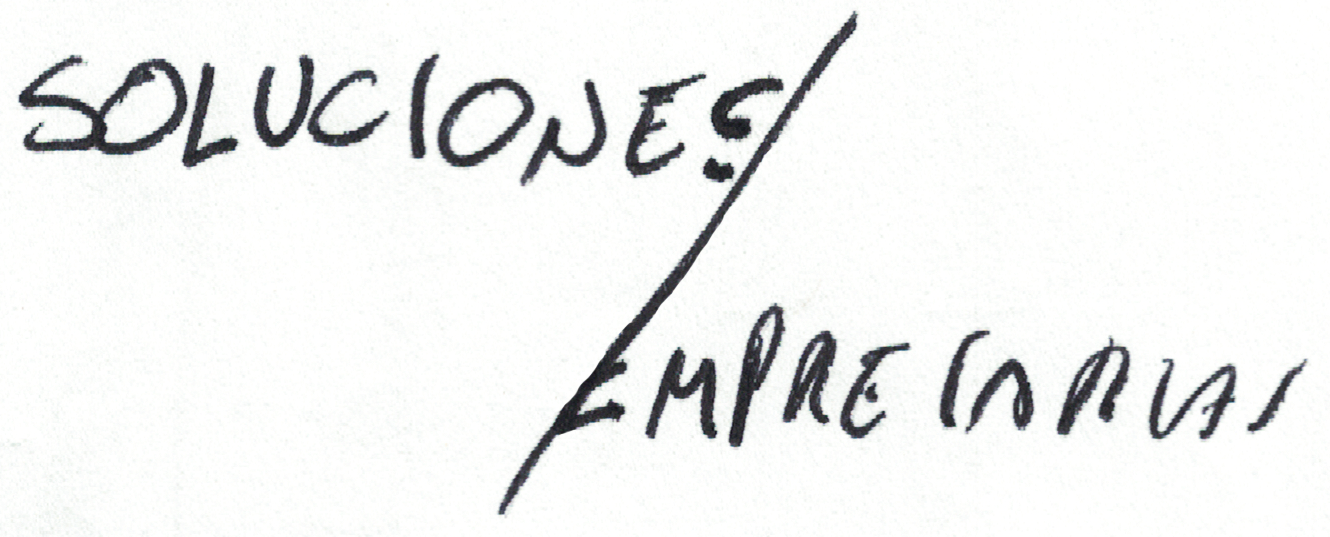 SOLUCIONES
EMPRESARIAS